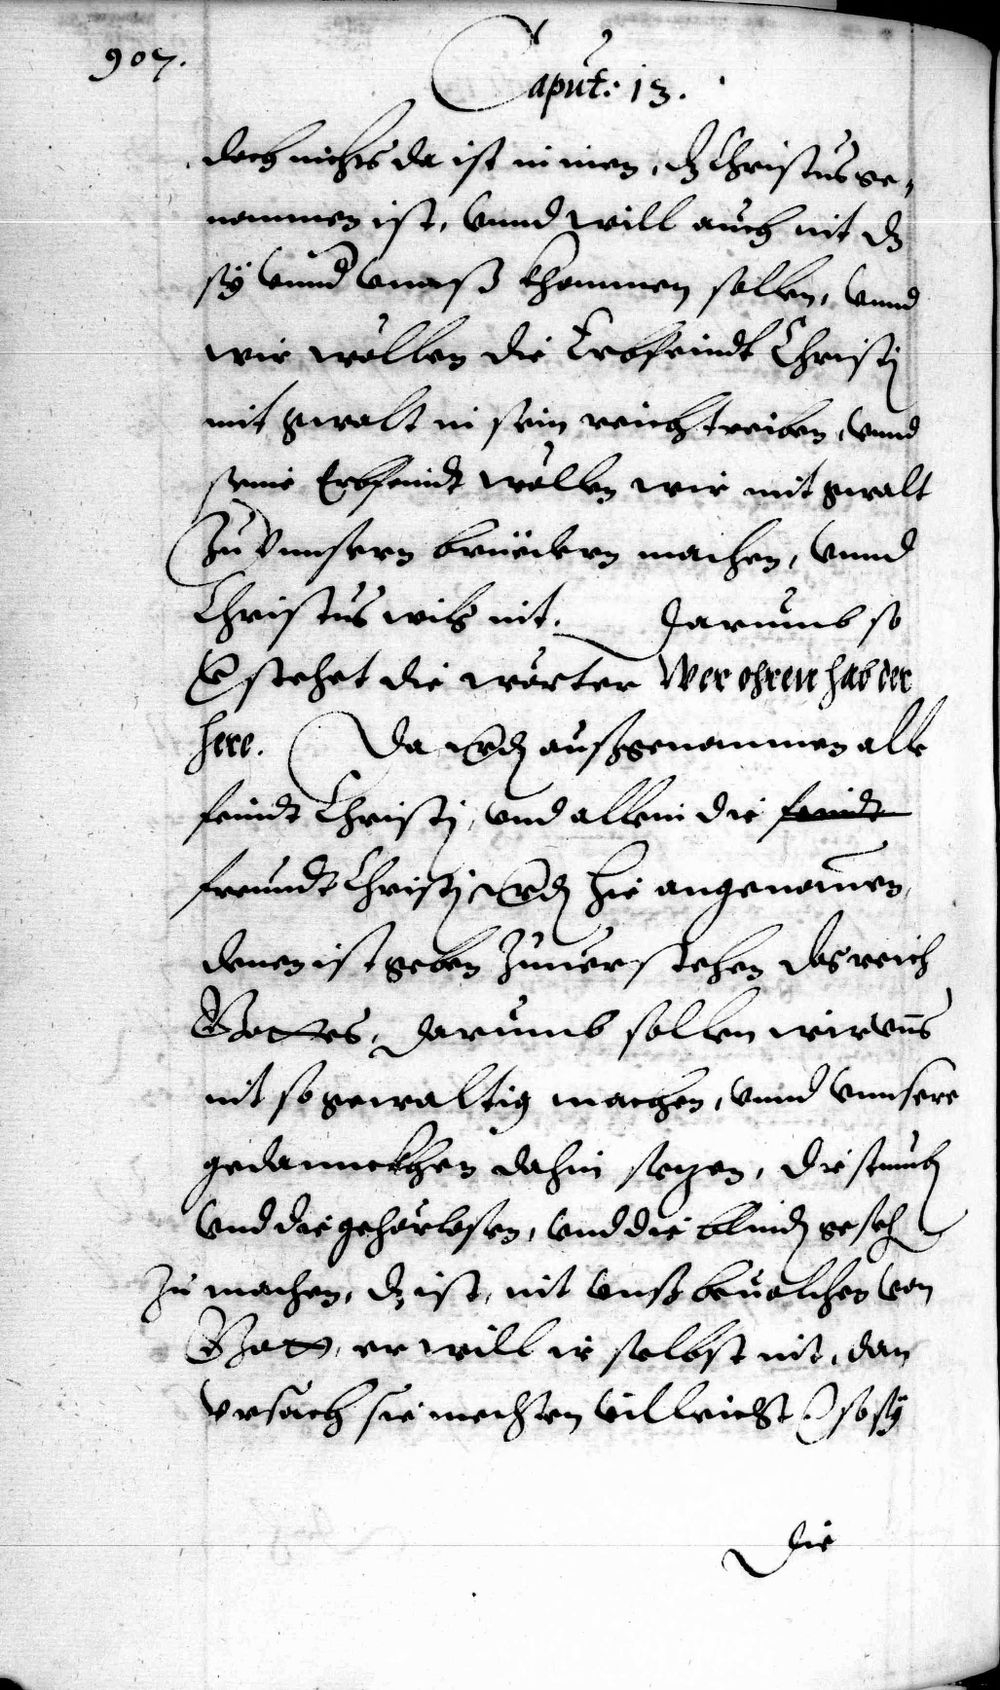 907.
Caput: 13.
doch nichts da ist in inen, dz Christus ge-
nommen ist, vnnd will auch nit dz
sÿ vnnd vnaß khommen sollen, vnnd
wir wöllen die Erbfeindt Christj
mit gwalt in sein reich treiben, vnnd
seine Erbfeindt wöllen wir mit gwalt
zu vnnsern brüedern machen, vnnd
Christus wils nit. Darumb so
verstehet die wörter Wer ohren hab der
here. Da werden außgenommen alle
feindt Christj, vnd allein die feindt
freundt Christj werden hie angenomen,
denen ist geben zuuerstehen das reich
Gottes, darumb sollen wir vns
nit so gewaltig machen, vnnd vnnsere
gedannckhen dahin sezen, die stumen
vnd die gehörlosen, vnd die blinden geseh
zu machen, dz ist, nit vnß beuolchen von
Gott, er will ir selbst nit, dan
vrsach sie mechten villeicht so sÿ
die